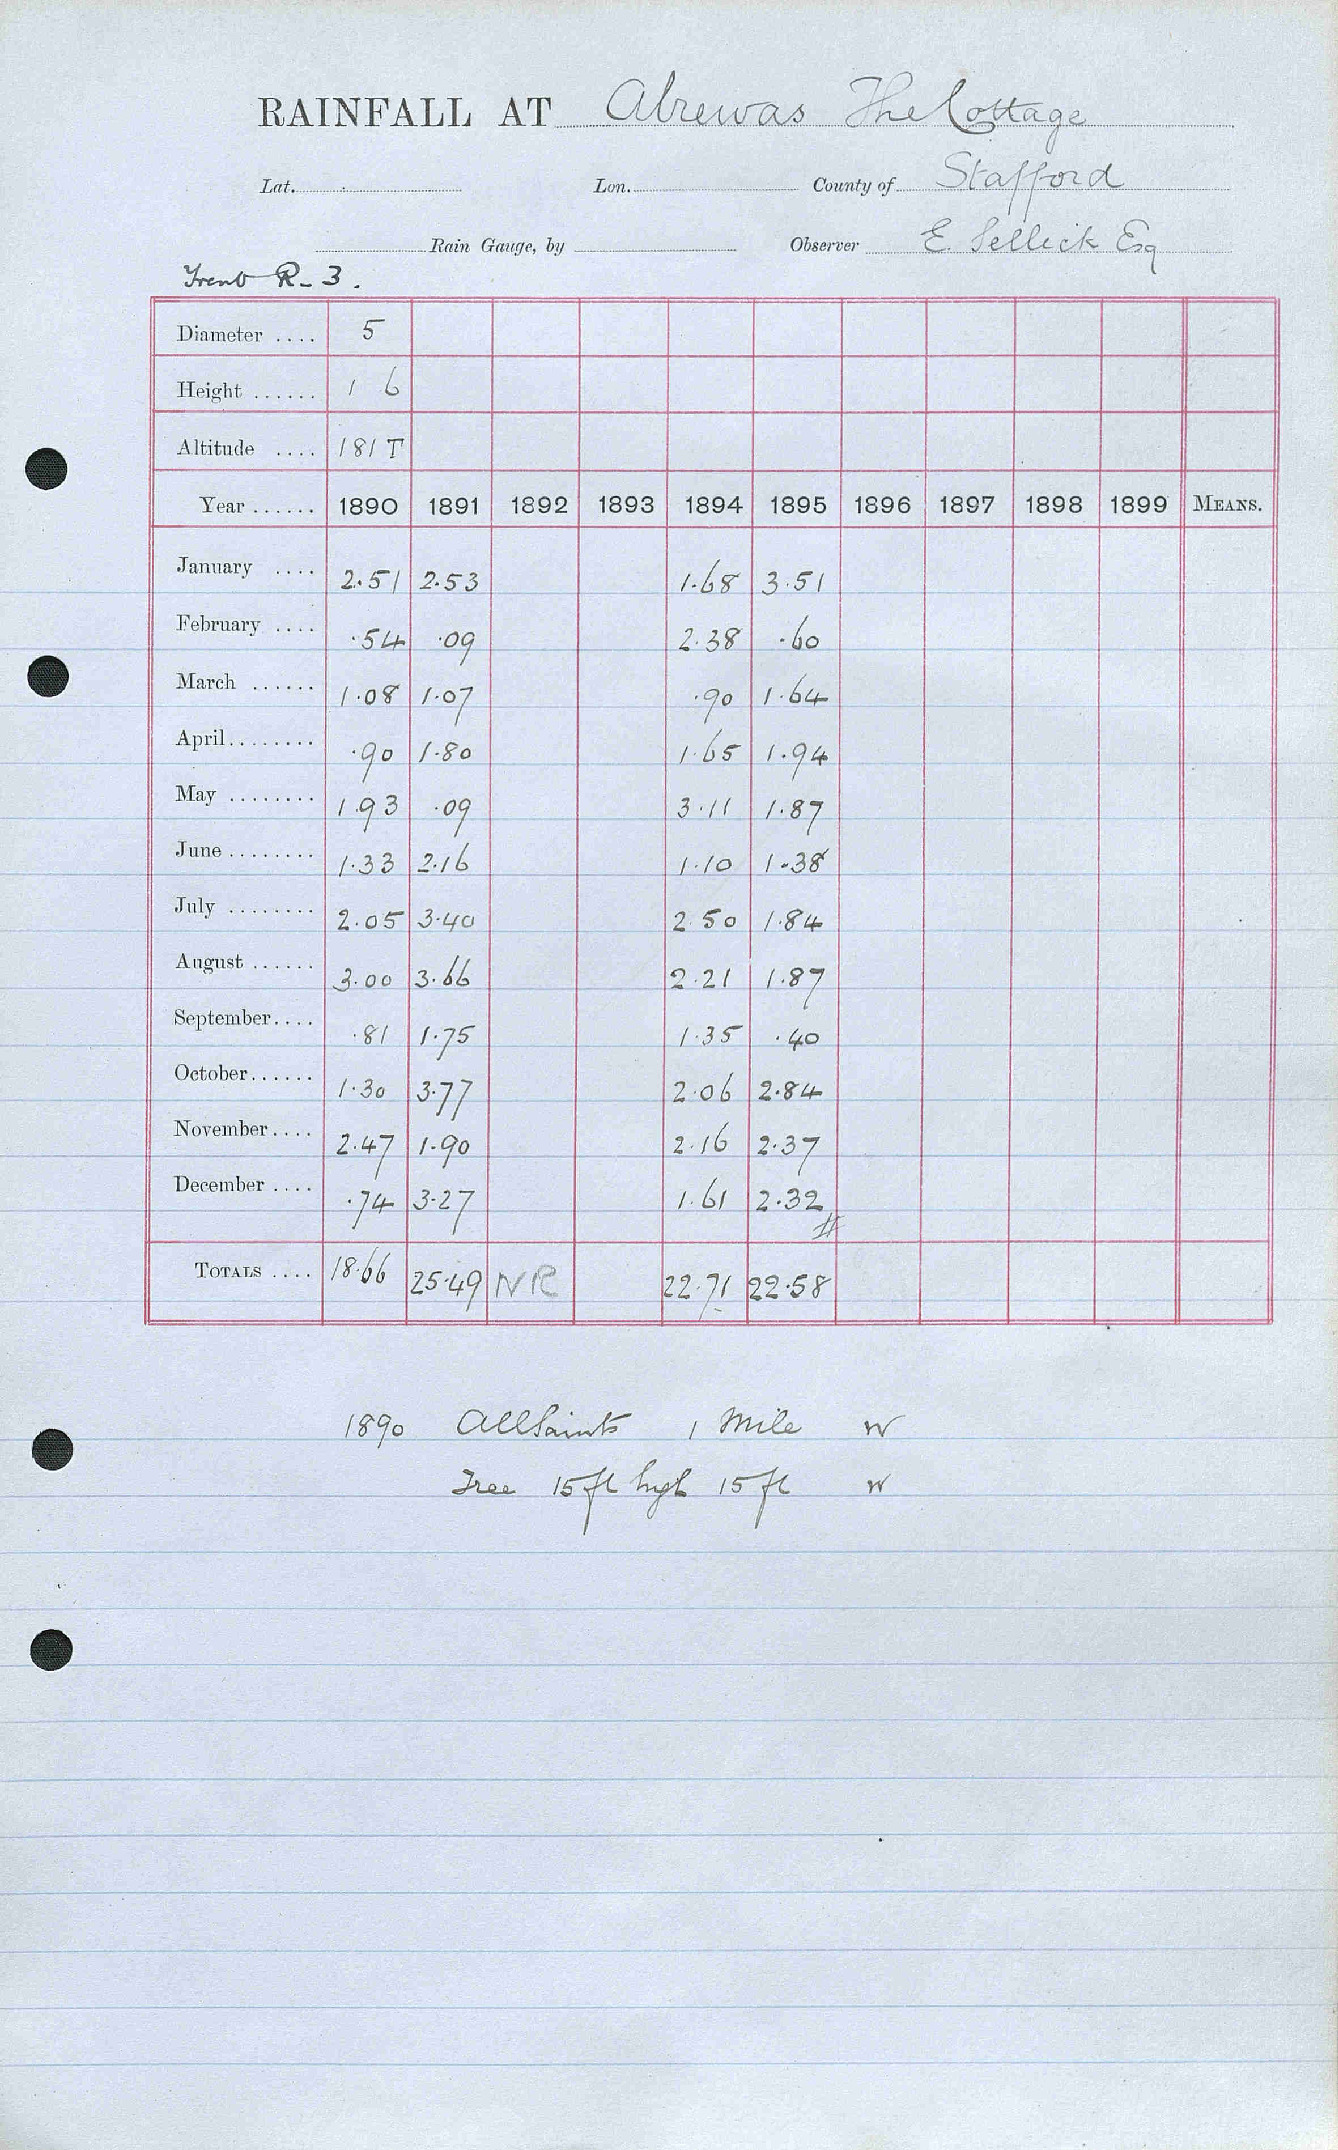 RAINFALL AT Alrewas The Cottage
Lat. Lon. County of Stafford
Rain Gauge, by Observer E. Sellick Esq
Trent R - 3.
Diameter .... 5
Height ...... 1 6
Altitude .... 181 T
Year ...... 1890 1891 1892 1893 1894 1895 1896 1897 1898 1899 MEANS.
January .... 2.51 2.53 1.68 3.51
February .... .54 .09 2.38 .60
March ...... 1.08 1.07 .90 1.64
April........ .90 1.80 1.65 1.94
May ........ 1.93 .09 3.11 1.87
June ........ 1.33 2.16 1.10 1.38
July ........ 2.05 3.40 2.50 1.84
August ...... 3.00 3.66 2.21 1.87
September.... .81 1.75 1.35 .40
October...... 1.30 3.77 2.06 2.84
November.... 2.47 1.90 2.16 2.37
December .... .74 3.27 1.61 2.32
#
TOTALS .... 18.66 25.49 NR 22.71 22.58
1890 All Saints 1 Mile W
Tree 15 ft high 15 ft W